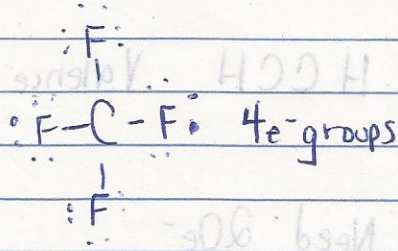 F
F-C-F 4e⁻ groups
F